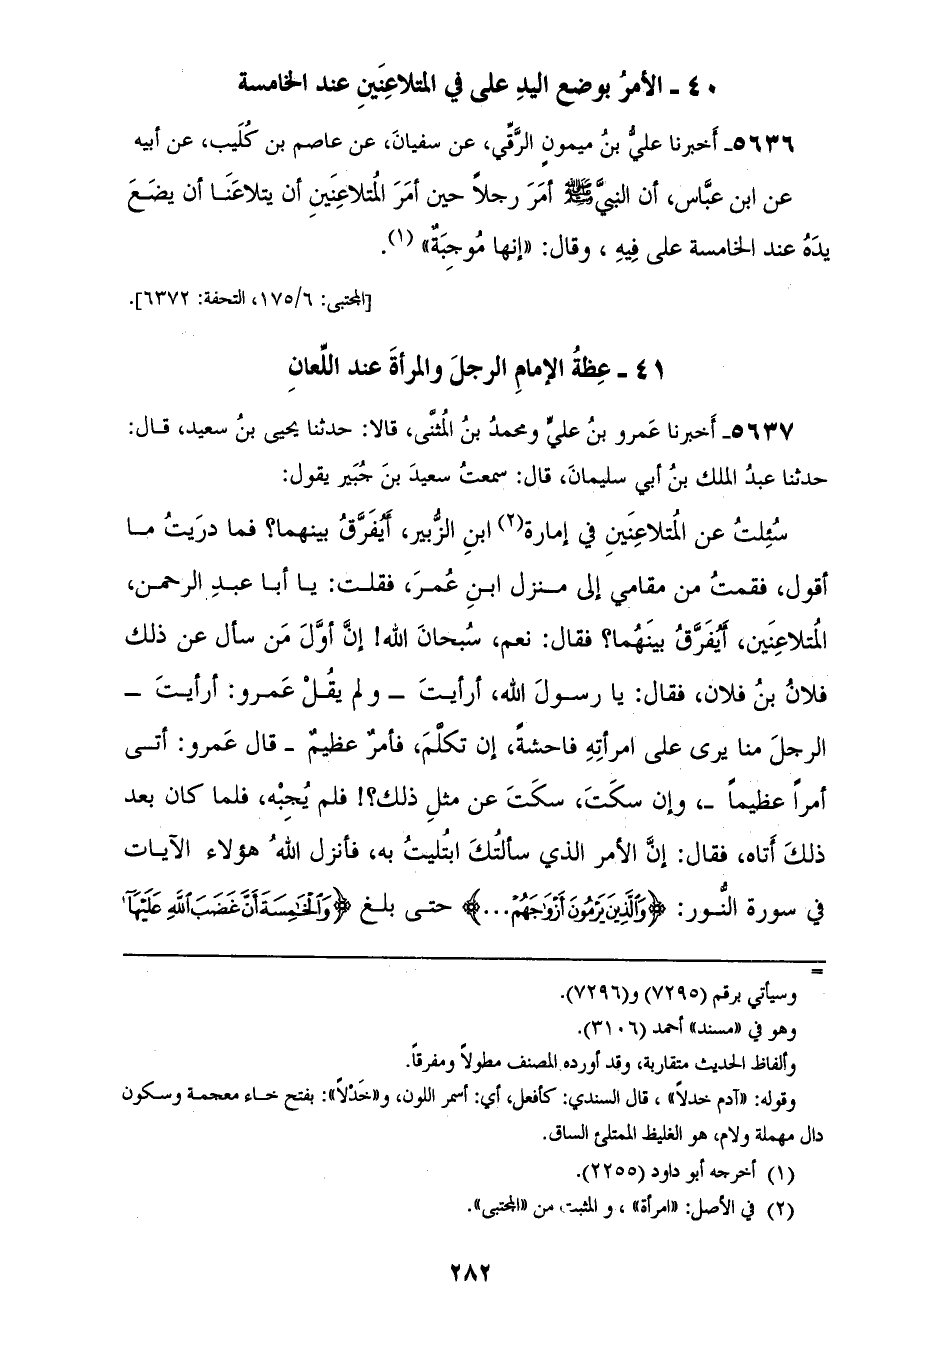 ٤٠ ـ الأمرُ بوضع اليدِ على في المتلاعِنَينِ عند الخامسة
٥٦٣٦ـ أخبرنا عليُّ بنُ ميمونٍ الرَّقِّي، عن سفيانَ، عن عاصم بن كُلَيب، عن أبيه
عن ابن عبَّاس، أن النبيَّ ﷺ أمَرَ رجلاً حين أمَرَ المُتلاعِنَينِ أن يتلاعَنَا أن يضَعَ
يدَهُ عند الخامسة على فِيهِ ، وقال: «إنها مُوجِبَةٌ» (١).
[المجتبى: ٦/١٧٥، التحفة: ٦٣٧٢].
٤١ ـ عِظةُ الإمامِ الرجلَ والمرأةَ عند اللِّعانِ
٥٦٣٧ـ أَخبرنا عَمرو بنُ عليٍّ ومحمدُ بنُ المُثنَّى، قالا: حدثنا يحيى بنُ سعيد، قـال:
حدثنا عبدُ الملك بنُ أبي سليمانَ، قال: سمعتُ سعيدَ بنَ جُبَير يقول:
سُئِلتُ عن المُتلاعِنَينِ في إمارة(٢) ابنِ الزُّبير، أَيُفَرَّقُ بينهما؟ فما درَيتُ مـا
أقول، فقمتُ من مقامي إلى مـنزل ابـنِ عُمـرَ، فقلـت: يـا أبـا عبـدِ الرحمـن،
المُتلاعِنَين، أَيُفَرَّقُ بينَهُما؟ فقال: نعم، سُبحانَ الله! إنَّ أوَّلَ مَن سأل عن ذلك
فلانُ بنُ فلان، فقال: يا رسـولَ الله، أرأيـتَ ــ و لم يقُـلْ عَمـرو: أرأيـتَ ــ
الرجلَ منا يرى على امرأتِهِ فاحشةً، إن تكلَّمَ، فأمرٌ عظيمٌ ـ قال عَمرو: أتـى
أمراً عظيماً ـ، وإن سكَتَ، سكَتَ عن مثلِ ذلك؟! فلم يُجِبْه، فلما كان بعد
ذلكَ أَتاه، فقال: إنَّ الأمر الذي سألتُكَ ابتُليتُ به، فأنزل اللهُ هؤلاء الآيـات
في سورة النُّور: ﴿وَٱلَّذِينَ يَرْمُونَ أَزْوَٰجَهُمْ...﴾ حتـى بلـغ ﴿وَٱلْخَٰمِسَةَ أَنَّ غَضَبَ ٱللَّهِ عَلَيْهَآ
=
وسيأتي برقم (٧٢٩٥) و(٧٢٩٦).
وهو في «مسند» أحمد (٣١٠٦).
وألفاظ الحديث متقاربة، وقد أورده المصنف مطولاً ومفرقاً.
وقوله: «آدم خدلاً» ، قال السندي: كأفعل، أي: أسمر اللون، و«خَدْلاً»: بفتح خـاء معجمـة وسـكون
دال مهملة ولام، هو الغليظ الممتلئ الساق.
(١) أخرجه أبو داود (٢٢٥٥).
(٢) في الأصل: «امرأة» ، و المثبت من «المجتبى».
٢٨٢